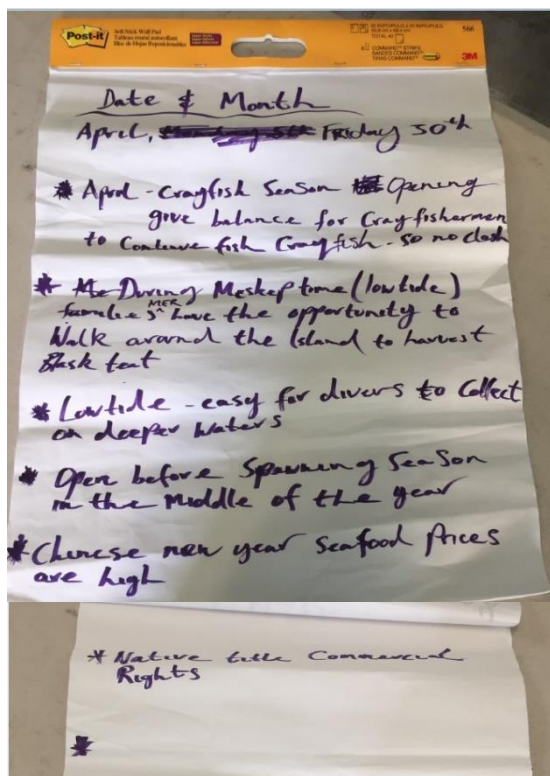 Post-it
Self-Stick Wall Pad
Tableau mural autocollant
566
COMMAND™ STRIPS
3M
Date & Month
April, Friday 30th
* April - Crayfish Season Opening
give balance for Crayfishermen
to continue fish Crayfish - so no clash
* During Meskep time (lowtide)
families MER have the opportunity to
Walk around the Island to harvest
Black teat
* Lowtide - easy for divers to Collect
on deeper waters
* Open before Spawning Season
in the Middle of the year
* Chinese new year Seafood Prices
are high
* Native title Commercial
Rights
*